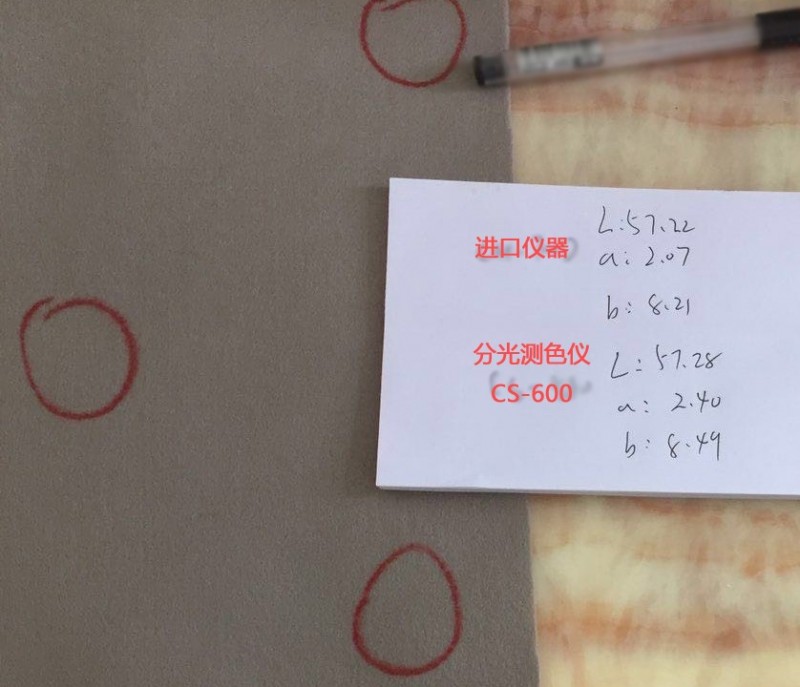 进口仪器
L:57.22
a: 2.07
b: 8.21
分光测色仪
CS-600
L: 57.28
a: 2.40
b: 8.49